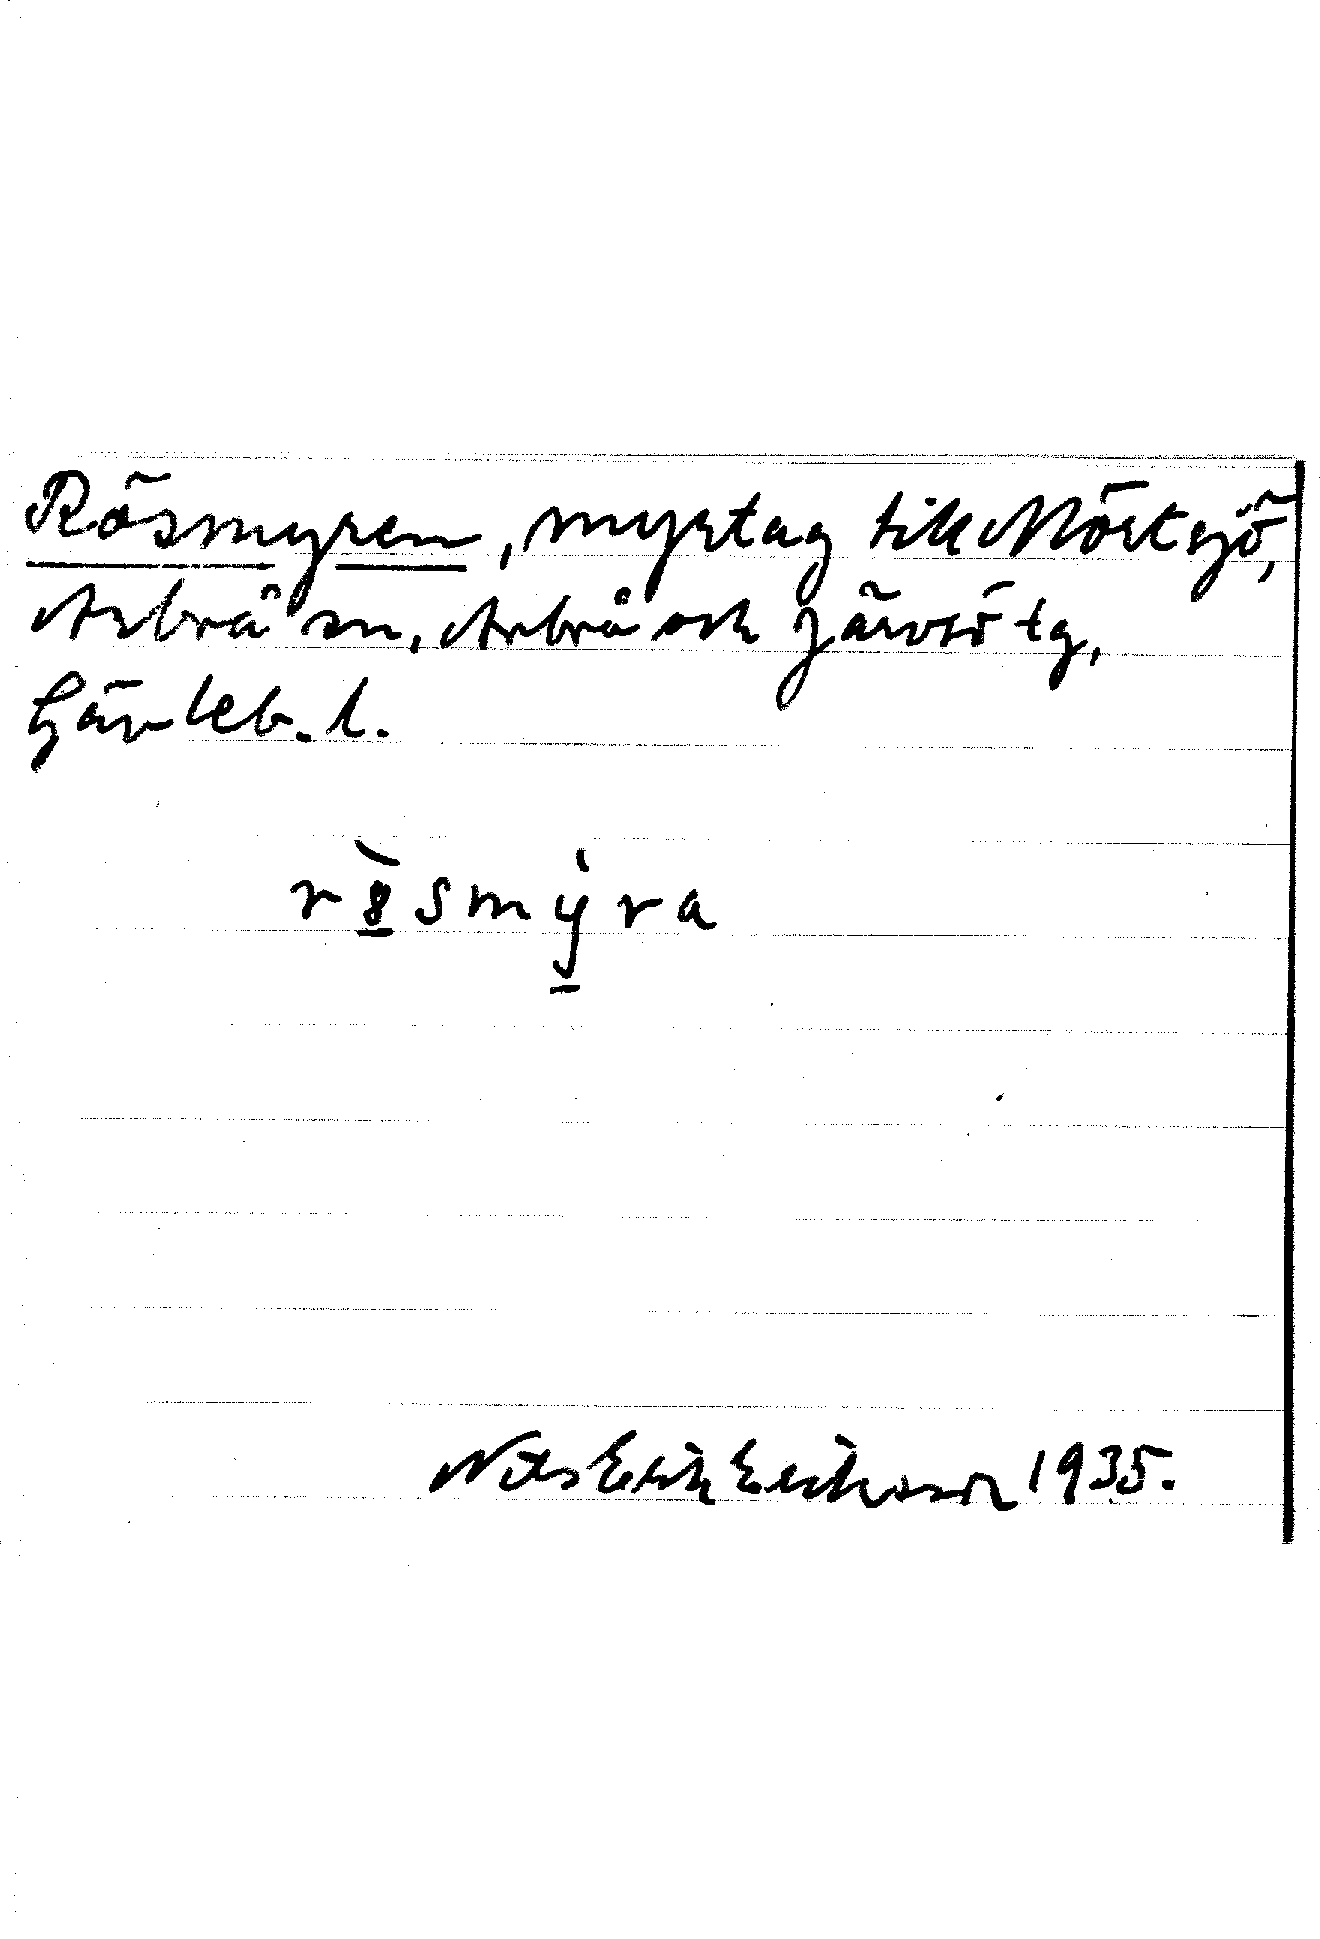 Rösmyren, myrtag till Mörtsjö,
Arbrå sn, Arbrå och Järvsö tg,
Gävleb. l.
Nils Erik Eriksson 1935.